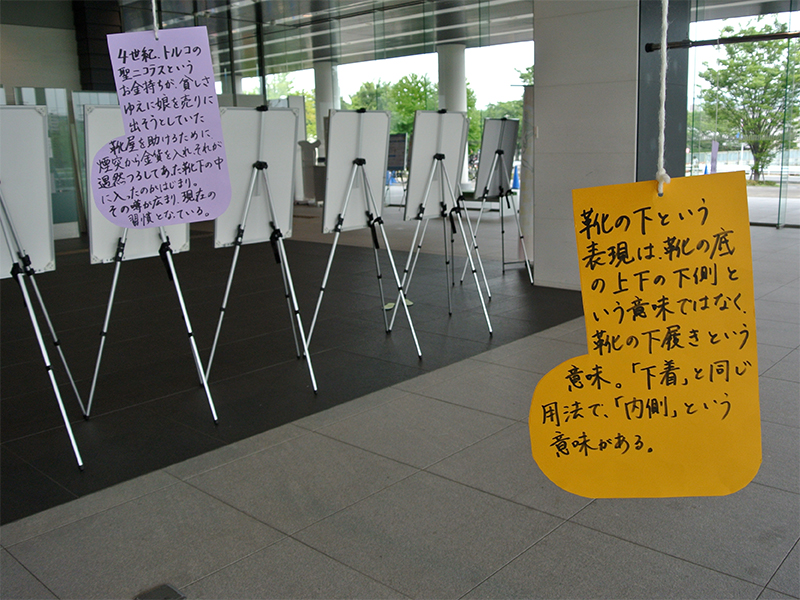 4世紀、トルコの
聖ニコラスという
お金持ちが、貧しさ
ゆえに娘を売りに
出そうとしていた
靴屋を助けるために
煙突から金貨を入れ、それが
偶然つるしてあった靴下の中
に入ったのがはじまり。
その噂が広まり、現在の
習慣となっている。
靴の下という
表現は、靴の底
の上下の下側と
いう意味ではなく、
靴の下履きという
意味。「下着」と同じ
用法で、「内側」という
意味がある。